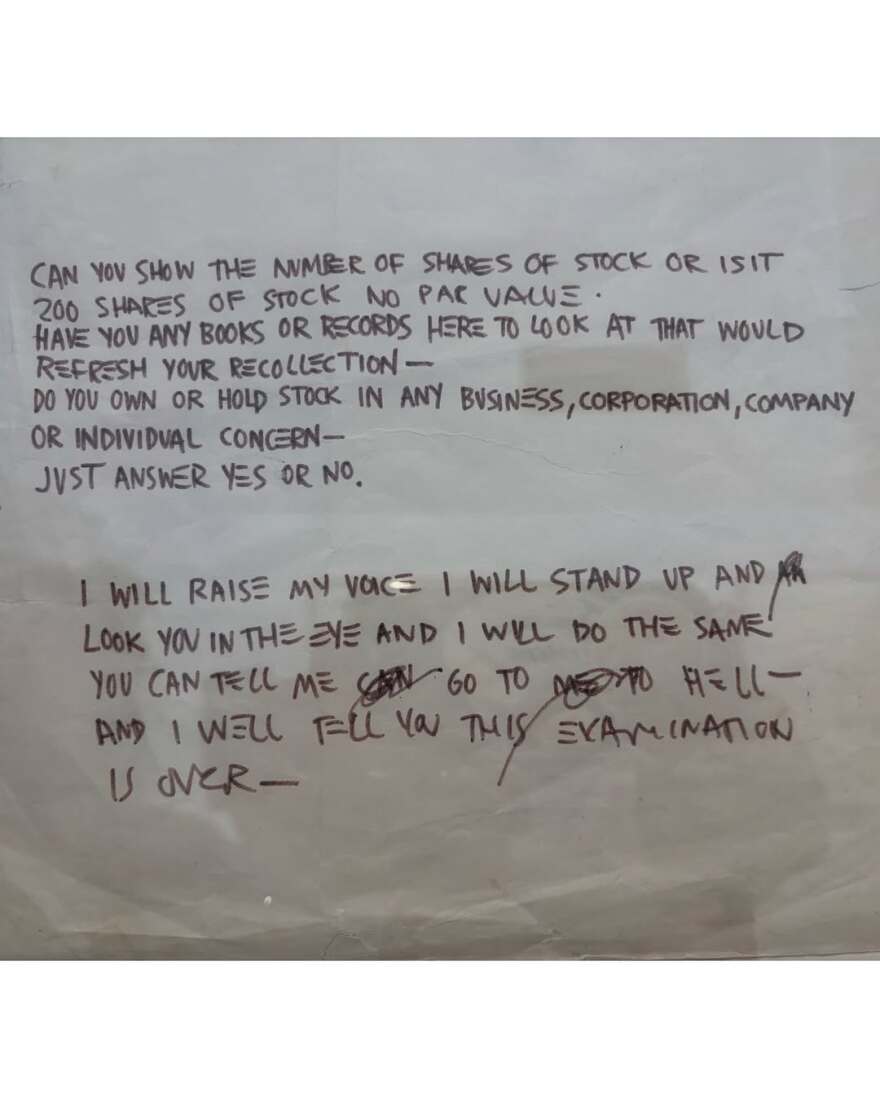 CAN YOU SHOW THE NUMBER OF SHARES OF STOCK OR IS IT
200 SHARES OF STOCK NO PAR VALUE.
HAVE YOU ANY BOOKS OR RECORDS HERE TO LOOK AT THAT WOULD
REFRESH YOUR RECOLLECTION—
DO YOU OWN OR HOLD STOCK IN ANY BUSINESS, CORPORATION, COMPANY
OR INDIVIDUAL CONCERN—
JUST ANSWER YES OR NO.
I WILL RAISE MY VOICE I WILL STAND UP AND
LOOK YOU IN THE EYE AND I WILL DO THE SAME
YOU CAN TELL ME GO TO TO HELL—
AND I WELL TELL YOU THIS EXAMINATION
IS OVER—